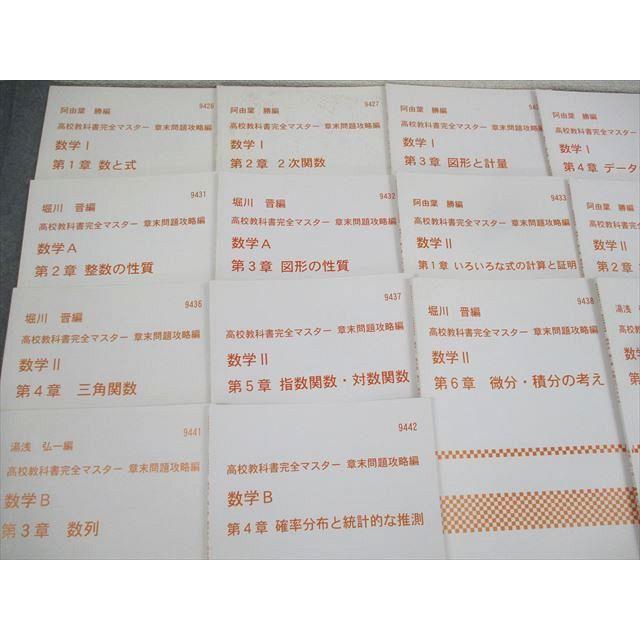 9426
阿由葉 勝編
高校教科書完全マスター 章末問題攻略編
数学Ⅰ
第1章 数と式
9427
阿由葉 勝編
高校教科書完全マスター 章末問題攻略編
数学Ⅰ
第2章 2次関数
阿由葉 勝編
高校教科書完全マスター 章末問題攻略編
数学Ⅰ
第3章 図形と計量
阿由葉 勝編
高校教科書完全
数学Ⅰ
第4章 データ
9431
堀川 晋編
高校教科書完全マスター 章末問題攻略編
数学A
第2章 整数の性質
9432
堀川 晋編
高校教科書完全マスター 章末問題攻略編
数学A
第3章 図形の性質
9433
阿由葉 勝編
高校教科書完全マスター 章末問題攻略編
数学Ⅱ
第1章 いろいろな式の計算と証明
阿由葉 勝編
高校教科書完
数学Ⅱ
第2章
9436
堀川 晋編
高校教科書完全マスター 章末問題攻略編
数学Ⅱ
第4章 三角関数
9437
高校教科書完全マスター 章末問題攻略編
数学Ⅱ
第5章 指数関数・対数関数
9438
堀川 晋編
高校教科書完全マスター 章末問題攻略編
数学Ⅱ
第6章 微分・積分の考え
湯浅
9441
湯浅 弘一編
高校教科書完全マスター 章末問題攻略編
数学B
第3章 数列
9442
高校教科書完全マスター 章末問題攻略編
数学B
第4章 確率分布と統計的な推測